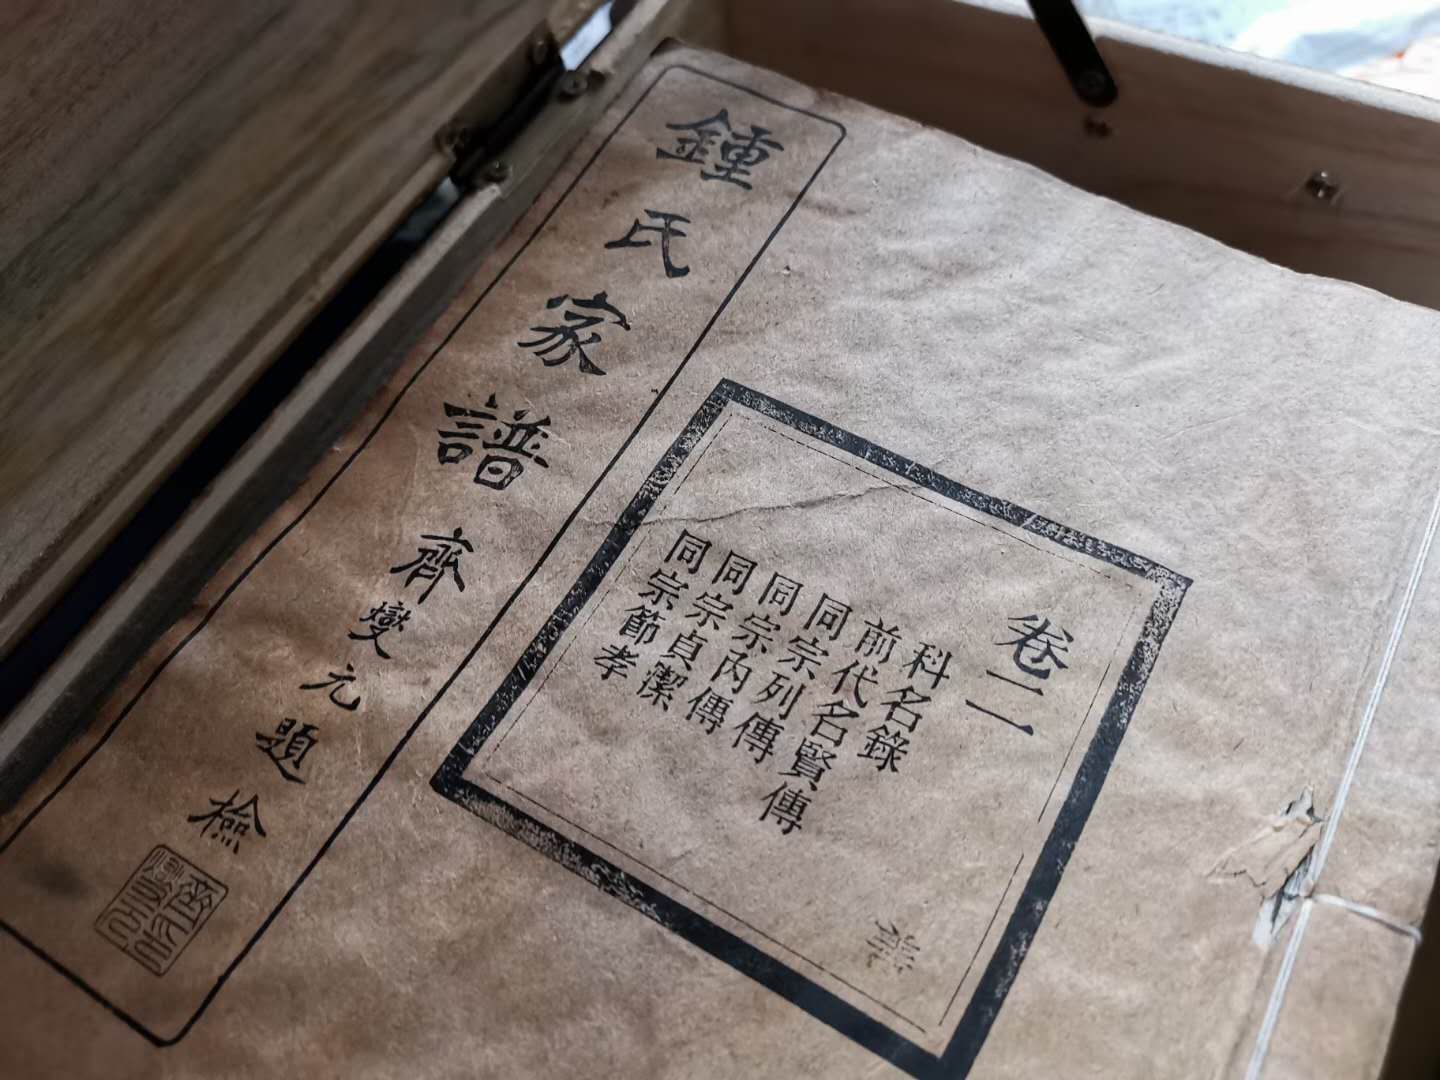 鍾氏家譜
齊燮元題檢
齊燮元印
卷二
科名錄
前代名賢傳
同宗列傳
同宗內傳
同宗貞潔
同宗節孝